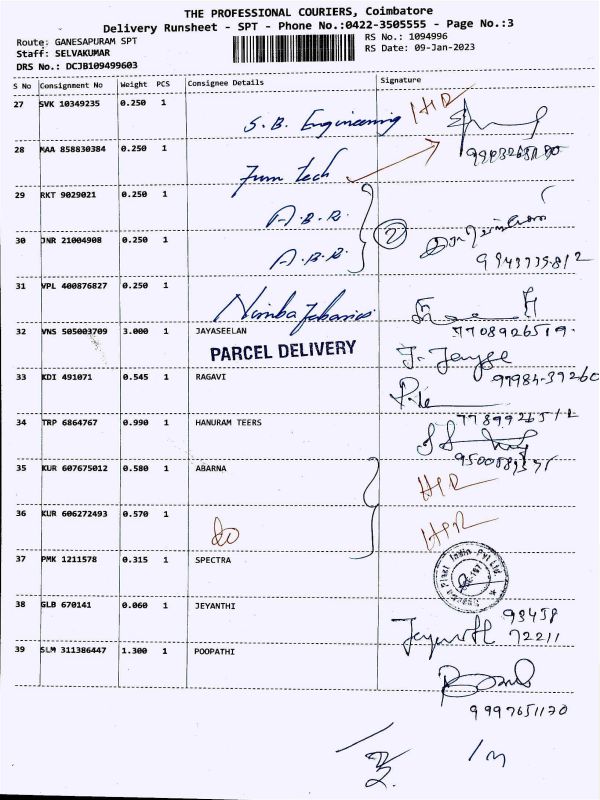 THE PROFESSIONAL COURIERS, Coimbatore
Delivery Runsheet - SPT - Phone No.:0422-3505555 - Page No.:3
Route: GANESAPURAM SPT
RS No.: 1094996
Staff: SELVAKUMAR
RS Date: 09-Jan-2023
DRS No.: DCJB109499603
S No Consignment No Weight PCS Consignee Details Signature
27 SVK 10349235 0.250 1
S.B. Engineering
28 MAA 858830384 0.250 1
tech
29 RKT 9029021 0.250 1
A.B.R.
30 JNR 21004908 0.250 1
2
A.B.R.
31 VPL 400876827 0.250 1
Nimba
7708926519.
32 VNS 505003709 3.000 1 JAYASEELAN
PARCEL DELIVERY
33 KDI 491071 0.545 1 RAGAVI
34 TRP 6864767 0.990 1 HANURAM TEERS
35 KUR 607675012 0.580 1 ABARNA
36 KUR 606272493 0.570 1
37 PMK 1211578 0.315 1 SPECTRA
Plast India Pvt Ltd
38 GLB 670141 0.060 1 JEYANTHI
98458
72211
39 SLM 311386447 1.300 1 POOPATHI
9997651170